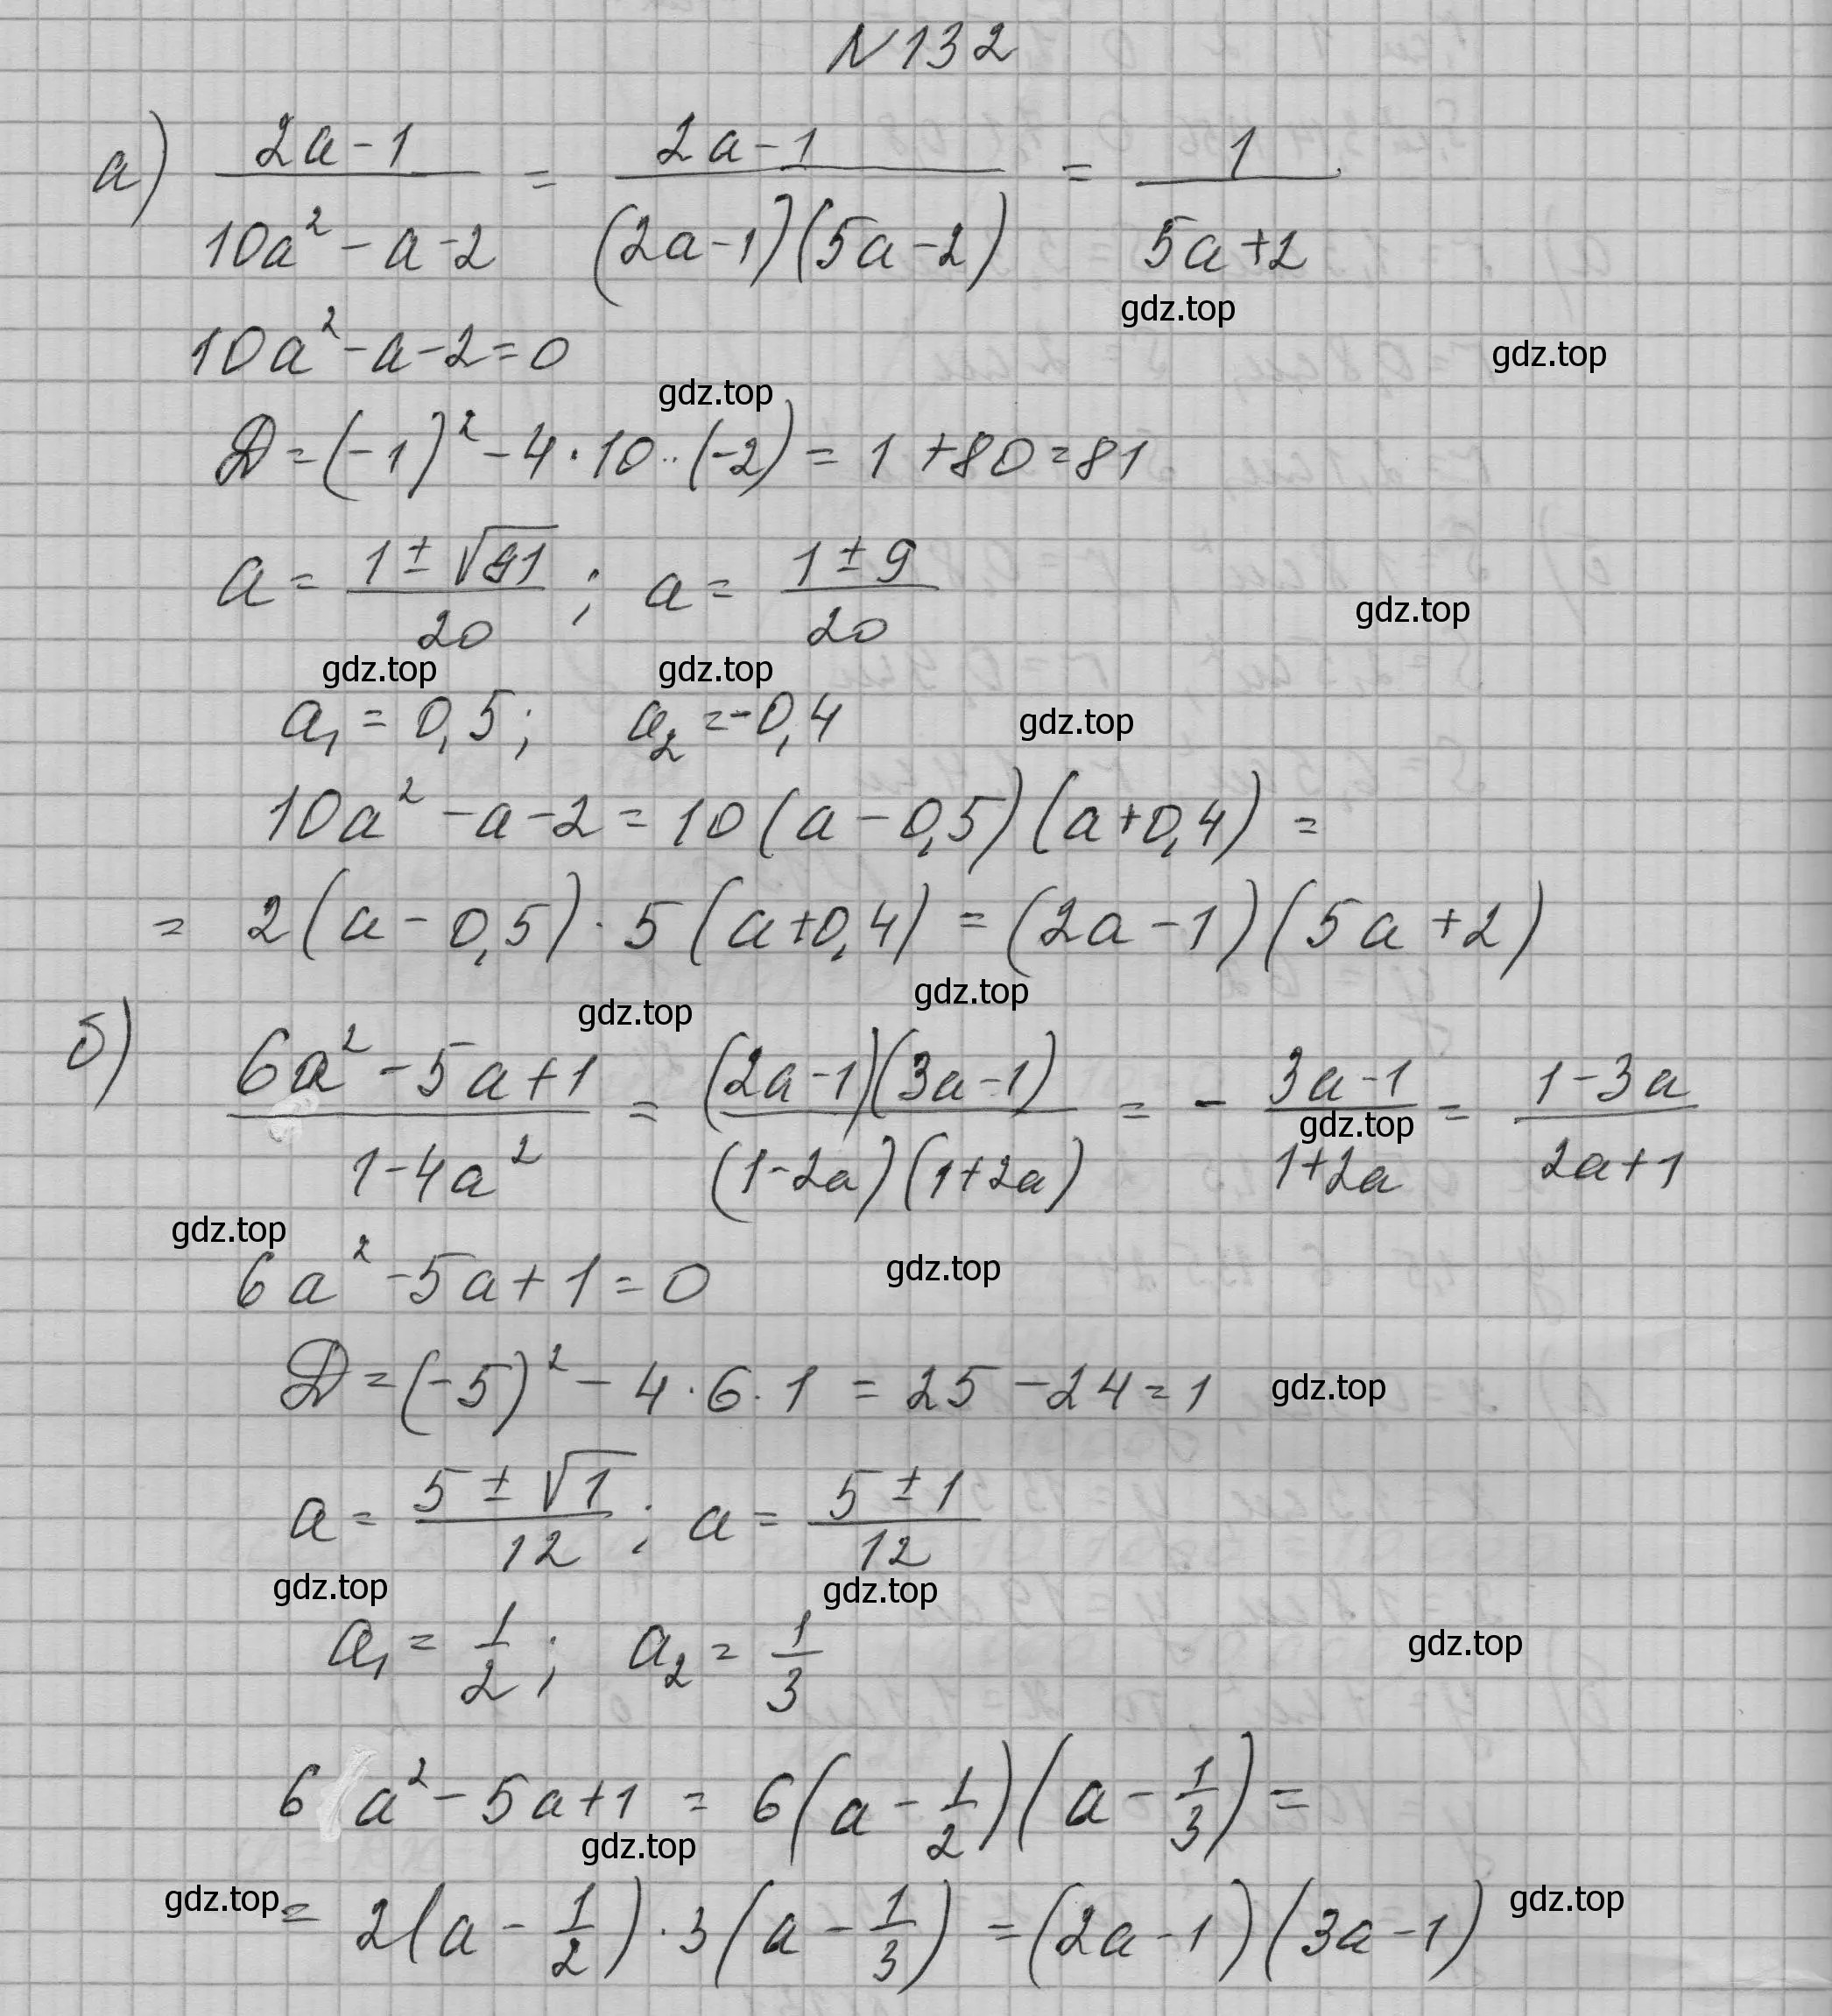 N132
а) (2a-1)/(10a²-a-2) = (2a-1)/((2a-1)(5a-2)) = 1/(5a+2)
gdz.top
10a²-a-2=0
gdz.top
gdz.top
D=(-1)²-4·10·(-2)=1+80=81
a=(1±√81)/20; a=(1±9)/20
gdz.top
gdz.top gdz.top
a₁=0,5; a₂=-0,4
gdz.top
10a²-a-2=10(a-0,5)(a+0,4)=
=2(a-0,5)·5(a+0,4)=(2a-1)(5a+2)
gdz.top gdz.top
б) (6a²-5a+1)/(1-4a²) = ((2a-1)(3a-1))/((1-2a)(1+2a)) = -(3a-1)/(1+2a) = (1-3a)/(2a+1)
gdz.top
gdz.top
6a²-5a+1=0
gdz.top
D=(-5)²-4·6·1=25-24=1
gdz.top
a=(5±√1)/12; a=(5±1)/12
gdz.top gdz.top
a₁=1/2; a₂=1/3
gdz.top
6a²-5a+1=6(a-1/2)(a-1/3)=
gdz.top
gdz.top
=2(a-1/2)·3(a-1/3)=(2a-1)(3a-1)
gdz.top